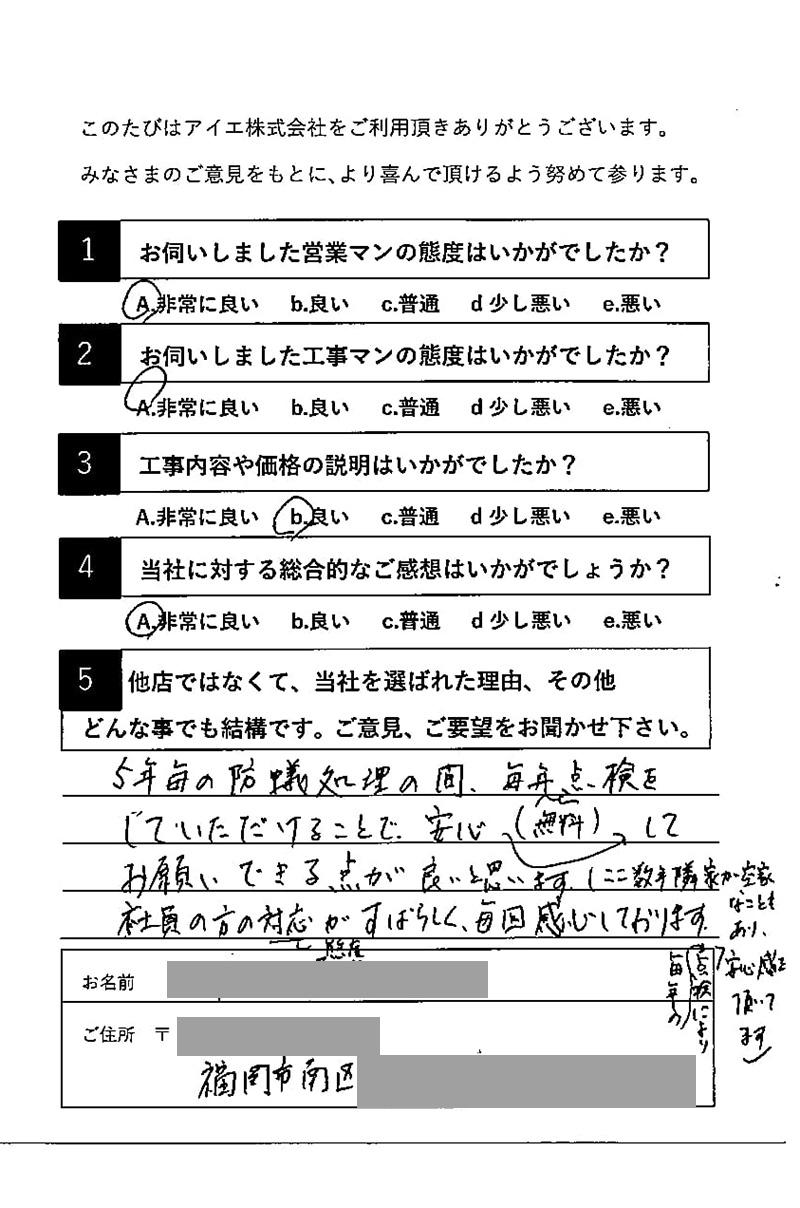 このたびはアイエ株式会社をご利用頂きありがとうございます。
みなさまのご意見をもとに、より喜んで頂けるよう努めて参ります。
1 お伺いしました営業マンの態度はいかがでしたか？
A.非常に良い b.良い c.普通 d少し悪い e.悪い
2 お伺いしました工事マンの態度はいかがでしたか？
A.非常に良い b.良い c.普通 d少し悪い e.悪い
3 工事内容や価格の説明はいかがでしたか？
A.非常に良い b.良い c.普通 d少し悪い e.悪い
4 当社に対する総合的なご感想はいかがでしょうか？
A.非常に良い b.良い c.普通 d少し悪い e.悪い
5 他店ではなくて、当社を選ばれた理由、その他
どんな事でも結構です。ご意見、ご要望をお聞かせ下さい。
5年毎の防蟻処理の間、毎年点検を
していただけることで、安心(無料)して
お願いできる点が良いと思います(ここ数年隣家が空家
なことも
あり、
毎年の
点検により
安心感を
頂いて
ます)
社員の方の対応がすばらしく、毎回感心しております。
態度
お名前
ご住所 〒
福岡市南区